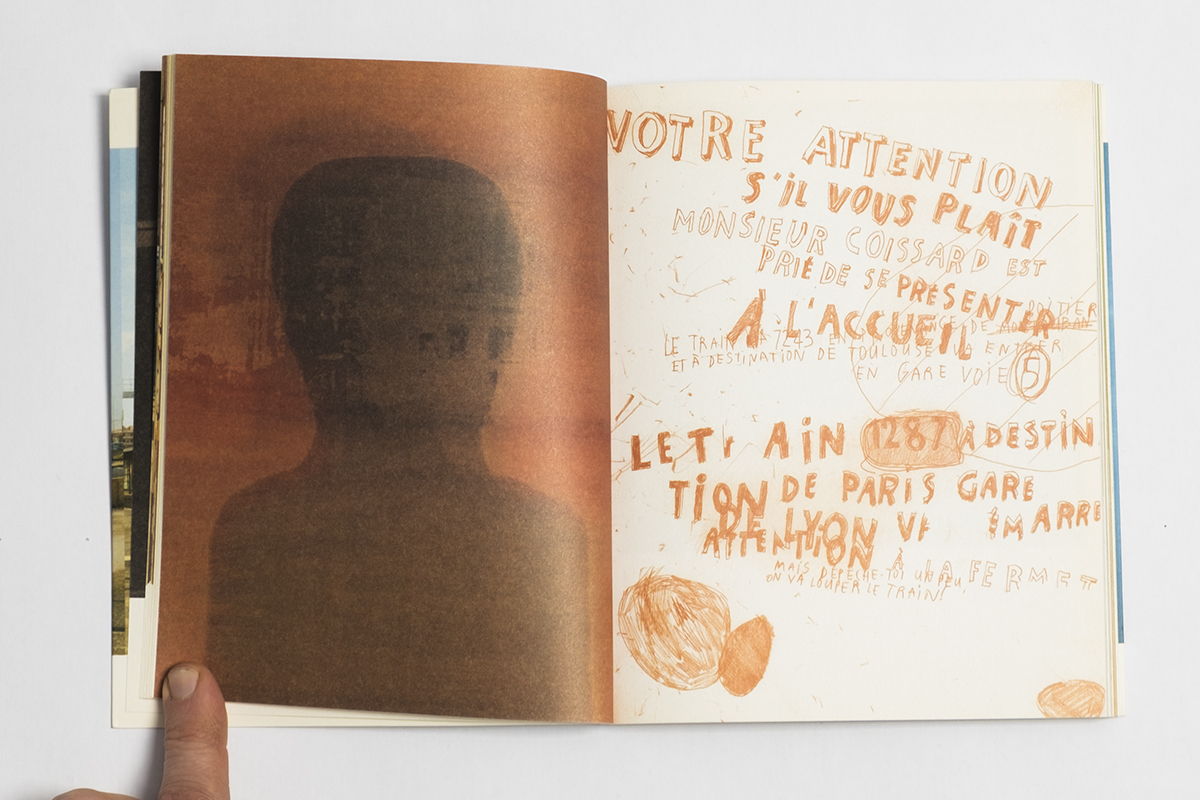 VOTRE ATTENTION
S'IL VOUS PLAÎT
MONSIEUR COISSARD EST
PRIÉ DE SE PRÉSENTER
À L'ACCUEIL
LE TRAIN 7243 EN DE
ET À DESTINATION DE TOULOUSE VA ENTRER
EN GARE VOIE 5
LE TrAiN 1287 À DESTIN
TION DE PARIS GARE
DE LYON
ATTENTION À LA FERMET
MAIS DÉPÊCHE-TOI UN PEU,
ON VA LOUPER LE TRAIN!